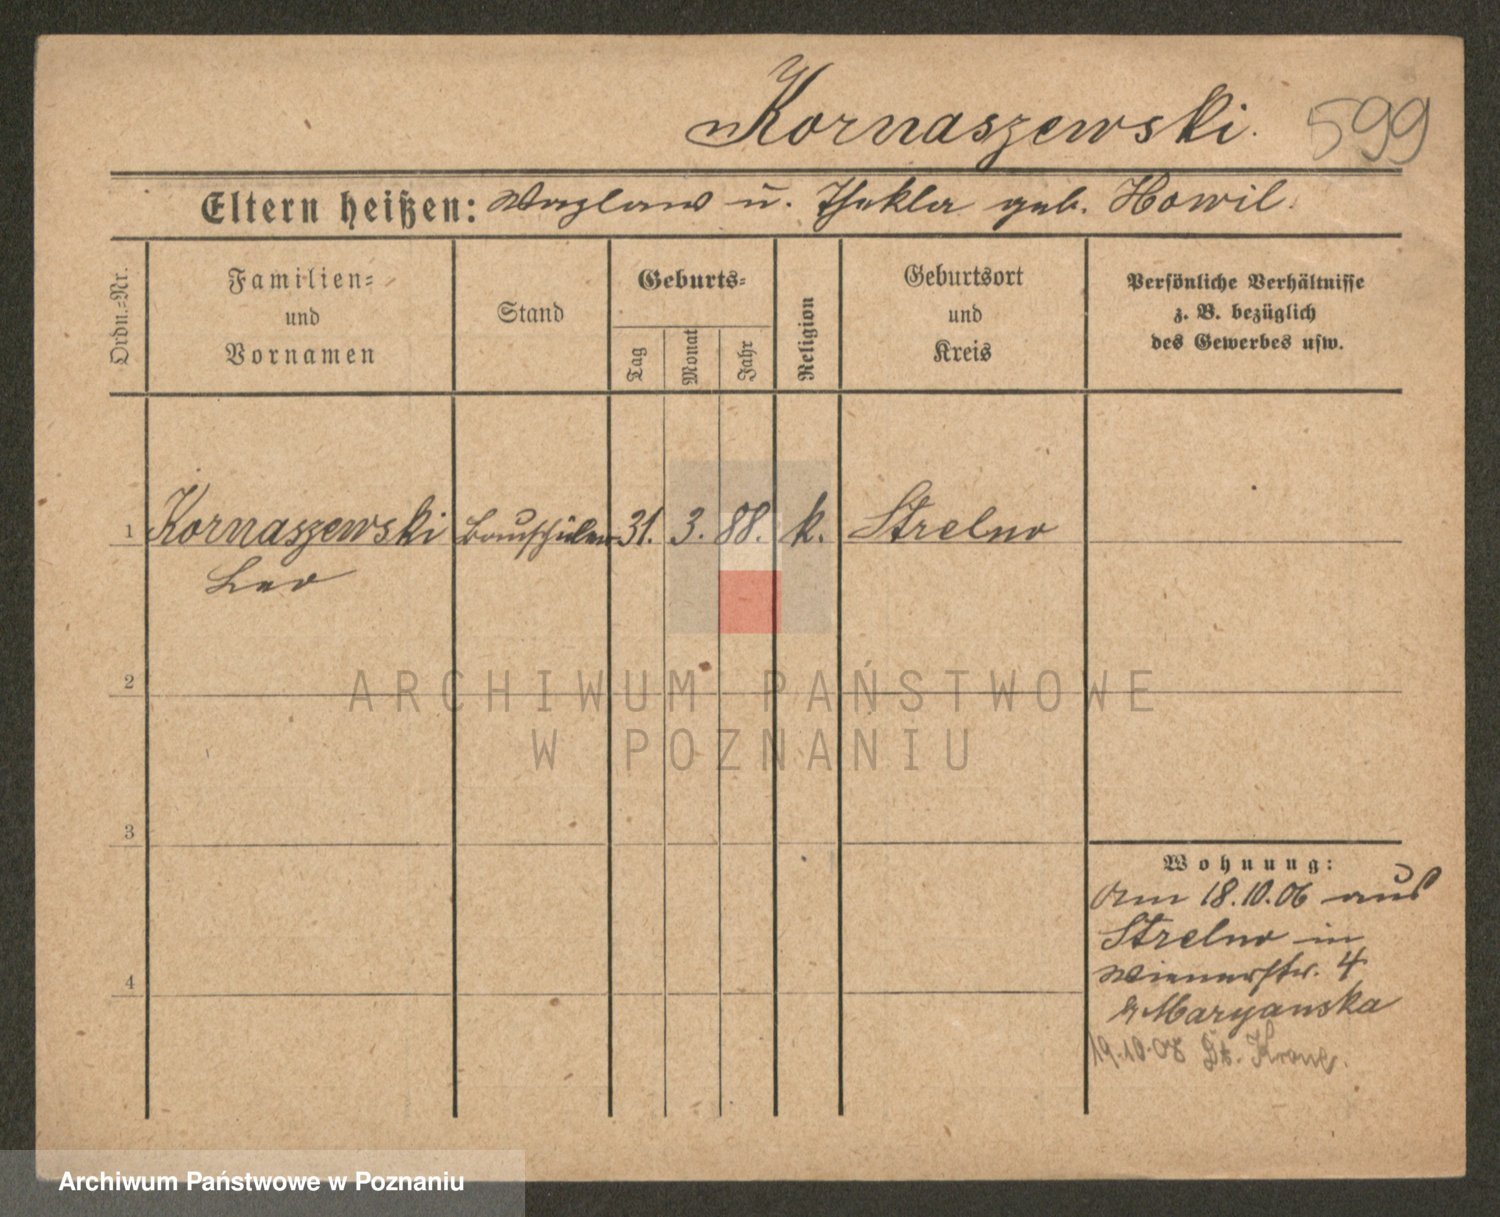 Kornaszewski. 599
Eltern heißen: Wazlaw u. Thekla geb. Howil.
Ordn.=Nr.
Familien=
und
Vornamen
Stand
Geburts=
Tag
Monat
Jahr
Religion
Geburtsort
und
Kreis
Persönliche Verhältnisse
z. B. bezüglich
des Gewerbes usw.
1 Kornaszewski Bauschüler 31. 3. 88. k. Strelno
Leo
2
ARCHIWUM PAŃSTWOWE
W POZNANIU
3
Wohnung:
Am 18.10.06 aus
Strelno in
Wienerstr. 4
b Maryanska
4
19.10.08 Dt. Krone.
Archiwum Państwowe w Poznaniu